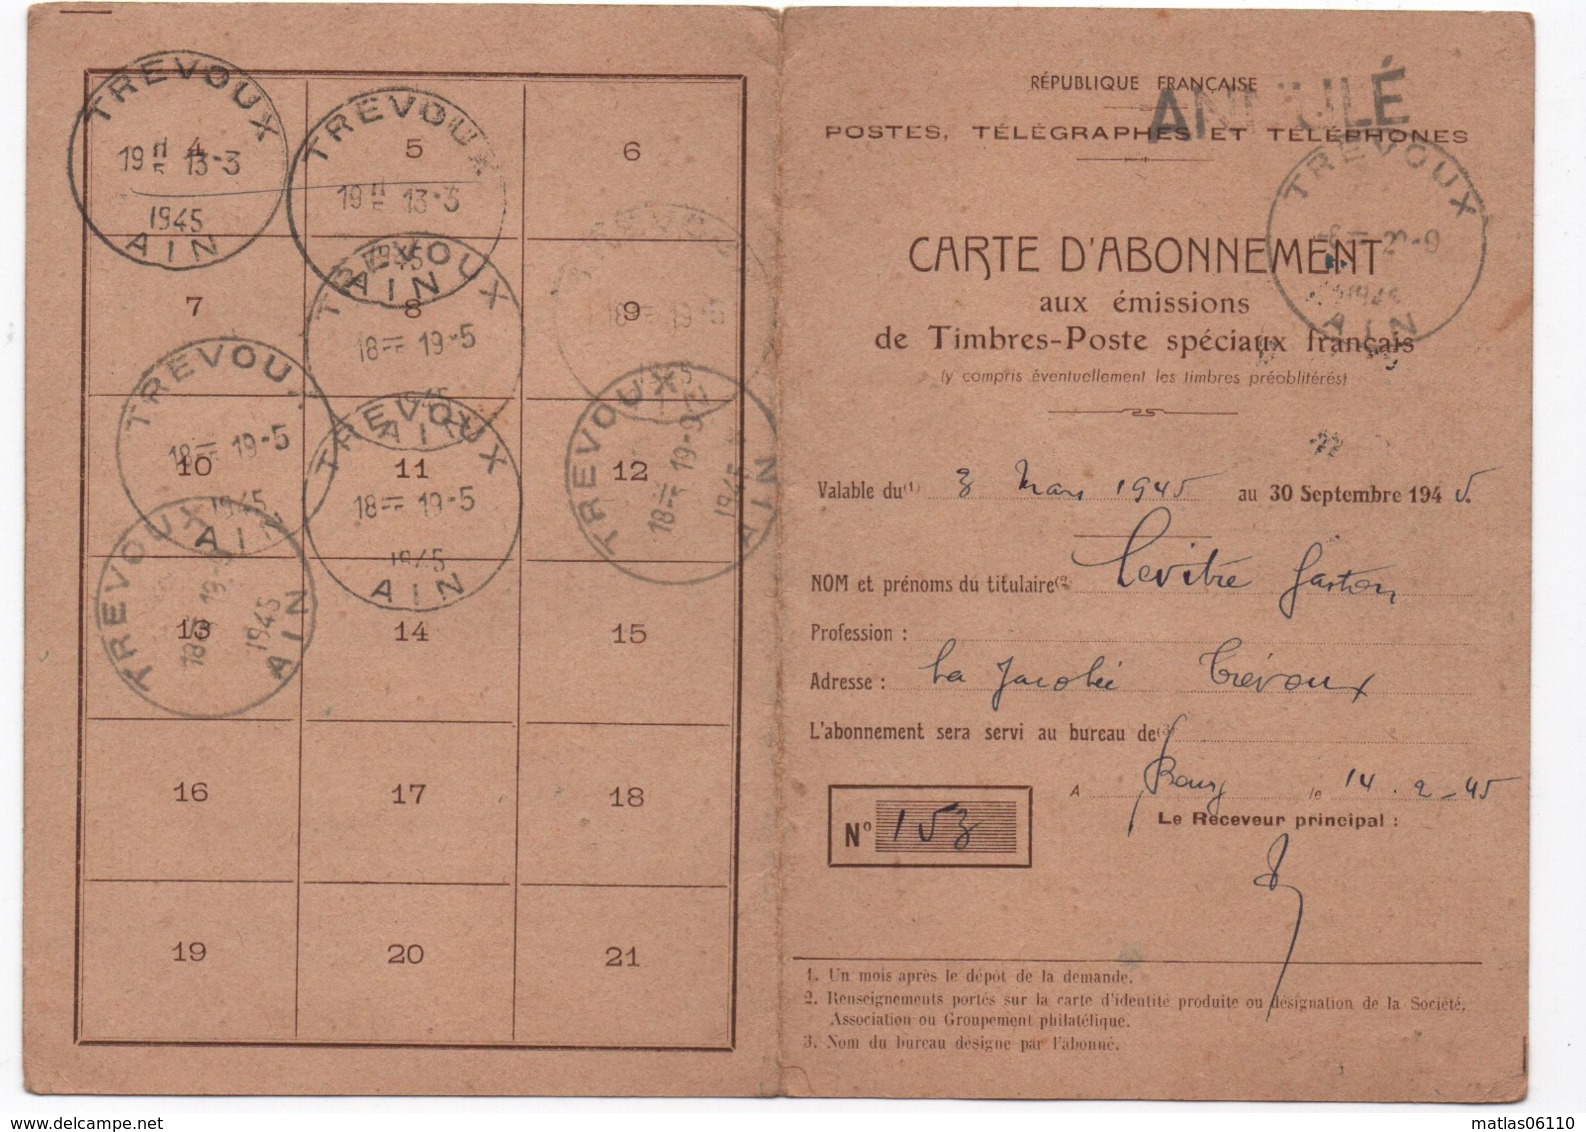 TREVOUX
19 H 13-3
1945
AIN
TREVOUX
19 H 13-3
1945
AIN
TREVOUX
18 H 19-5
1945
AIN
TREVOUX
18 H 19-5
1945
AIN
TREVOUX
18 H 19-5
1945
AIN
TREVOUX
18 H 19-9
1945
AIN
TREVOUX
1945
AIN
4 5 6
7 8 9
10 11 12
13 14 15
16 17 18
19 20 21
RÉPUBLIQUE FRANÇAISE
ANNULÉ
POSTES, TÉLÉGRAPHES ET TÉLÉPHONES
TREVOUX
1945
AIN
CARTE D'ABONNEMENT
aux émissions
de Timbres-Poste spéciaux français
(y compris éventuellement les timbres préoblitérés)
Valable du(1) 3 Mars 1945 au 30 Septembre 1945.
NOM et prénoms du titulaire(2) Levitre Gaston
Profession :
Adresse : La Jacobée Trévoux
L'abonnement sera servi au bureau de(3)
A Bourg le 14.2-45
Le Receveur principal :
N° 153
1. Un mois après le dépôt de la demande.
2. Renseignements portés sur la carte d'identité produite ou désignation de la Société,
Association ou Groupement philatélique.
3. Nom du bureau désigné par l'abonné.
delcampe.net
matlas06110